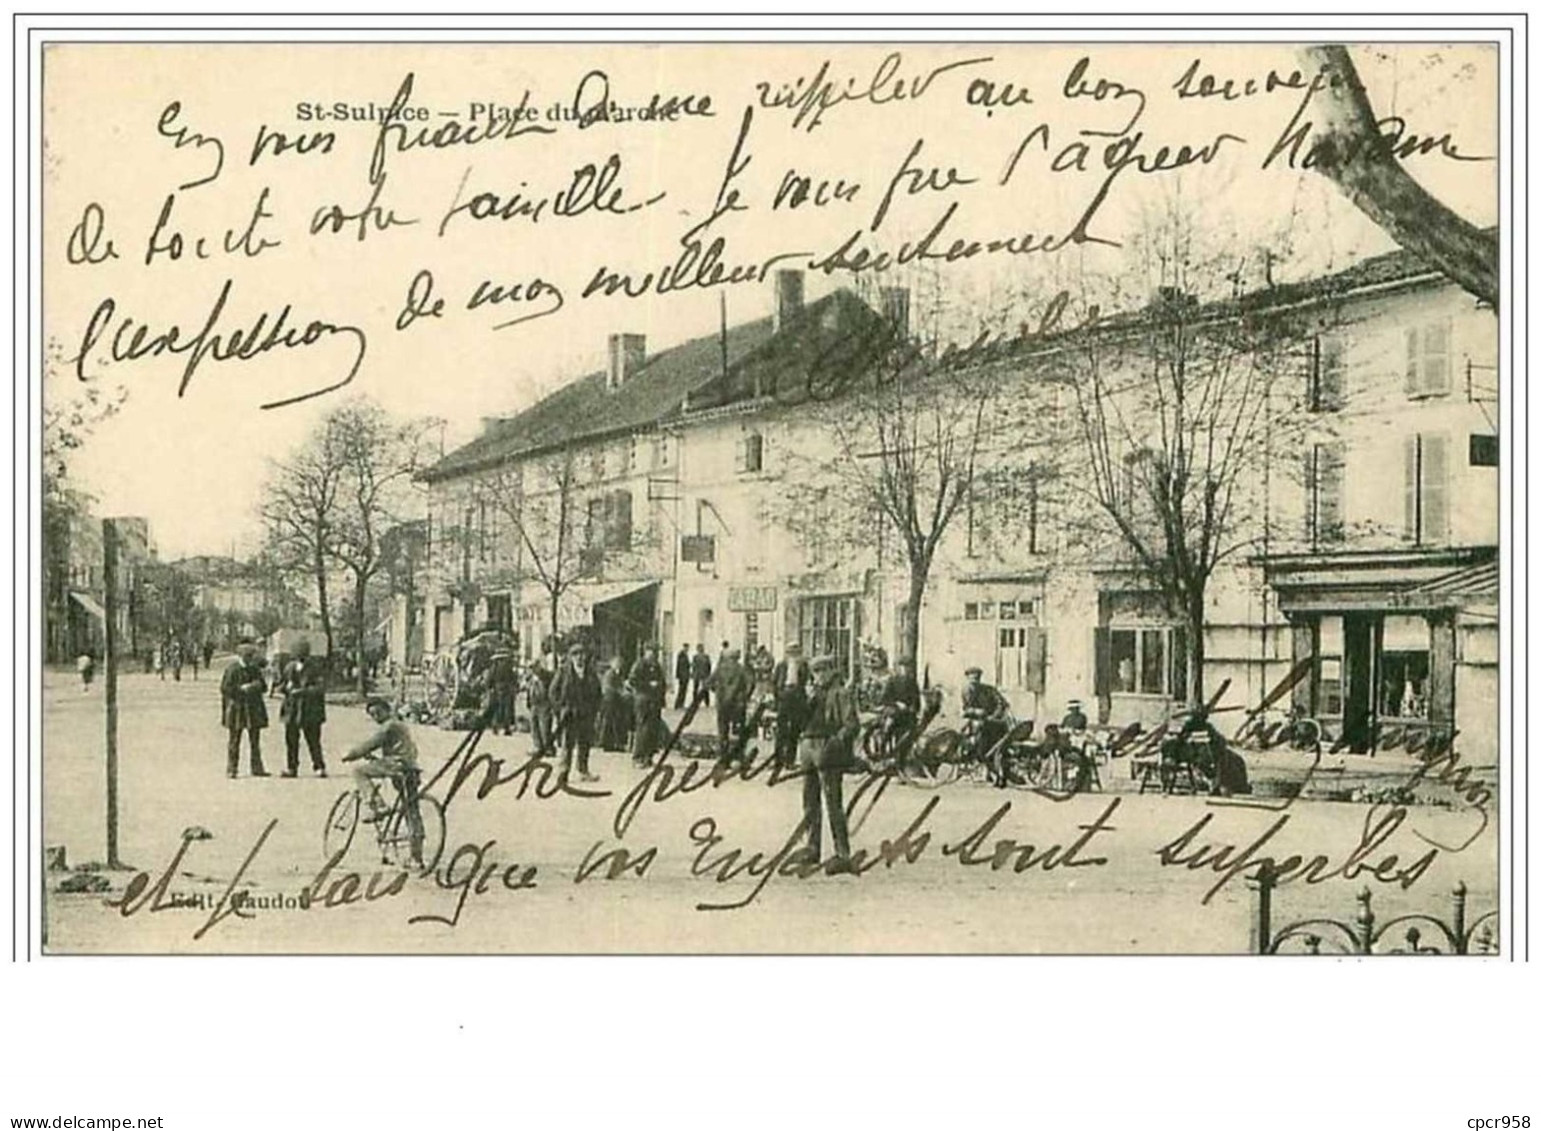 St-Sulpice — Place du Marché
En vous priant de me rappeler au bon souvenir
de toute votre famille. Je vous prie d'agréer Madame
l'expression de mon meilleur sentiment
TABAC
Votre petit est bien
et je sais que vos Enfants sont superbes
Edit. Gaudou
www.delcampe.net
cpcr958